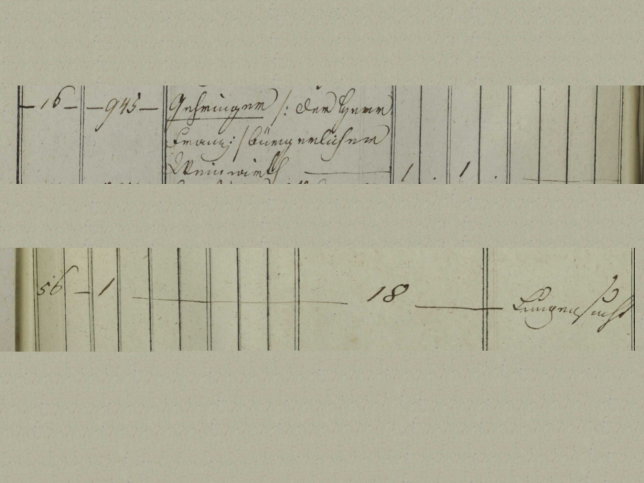 – 16 – – 945 – Gehringer /: der Herr
Franz :/ bürgerlicher
Weinwirth — 1 . 1 . —
56 – 1 — 18 — Lungensucht